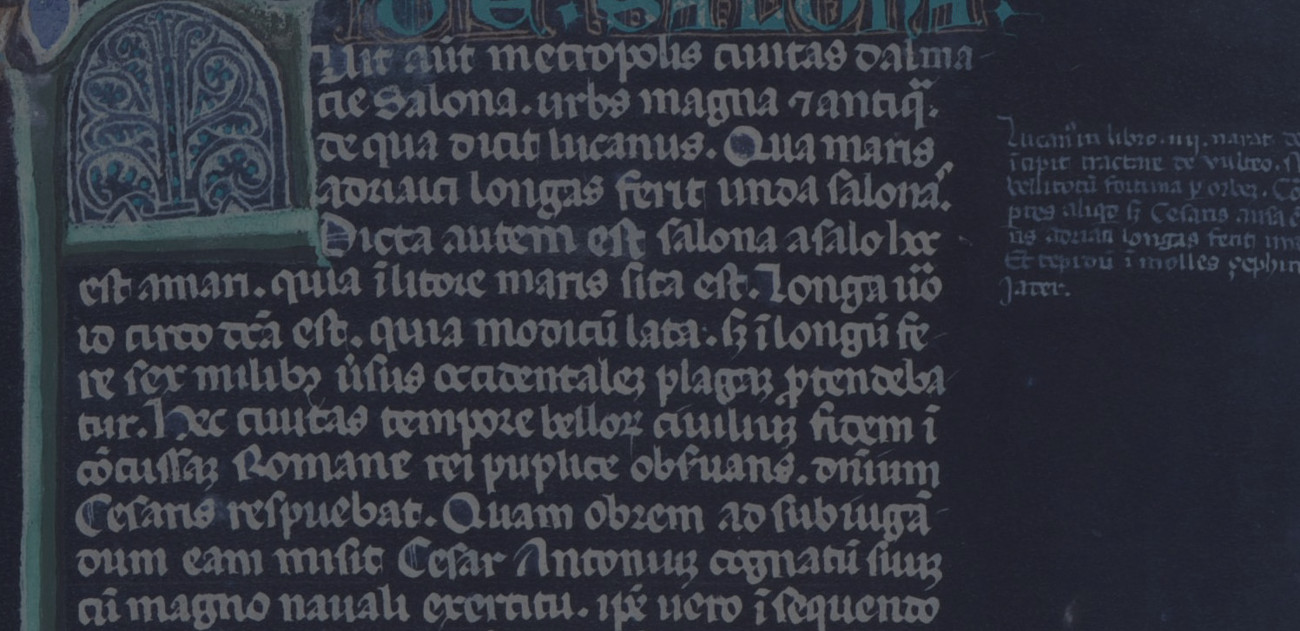 De. Salona.
Uit aūt metropolis ciuitas dalma
cie Salona. urbs magna ⁊ antiq̄.
de qua dicit lucanus. Qua maris
adriaici longas ferit unda salonas.
Dicta autem est salona a salo hoc
est a mari. quia ī litore maris sita est. Longa ūo
io circo dc̄a est. quia modicū lata. sꝫ ī longū fe
re sex milibꝫ ūsus occidentalē plagaꝫ ꝓtendeba
tur. Hec ciuitas tempore belloꝝ ciuiliuꝫ fidem ī
cōcussaꝫ Romane rei puplice obsuans. dn̄ium
Cesaris respuebat. Quam obrem ad subiugā
dum eam misit Cesar Antoniuꝫ cognatū suuꝫ
cū magno nauali exercitu. ip̄e uero ī sequendo
Lucanꝰ in libro. iiij. narat
īcipit tractare de vulteo.
fortuna ꝑ orbē.
ptes aliqꝫ sꝫ Cesaris
us adriaci longas ferit un
Et tepidū ī molles çephir
Jater.